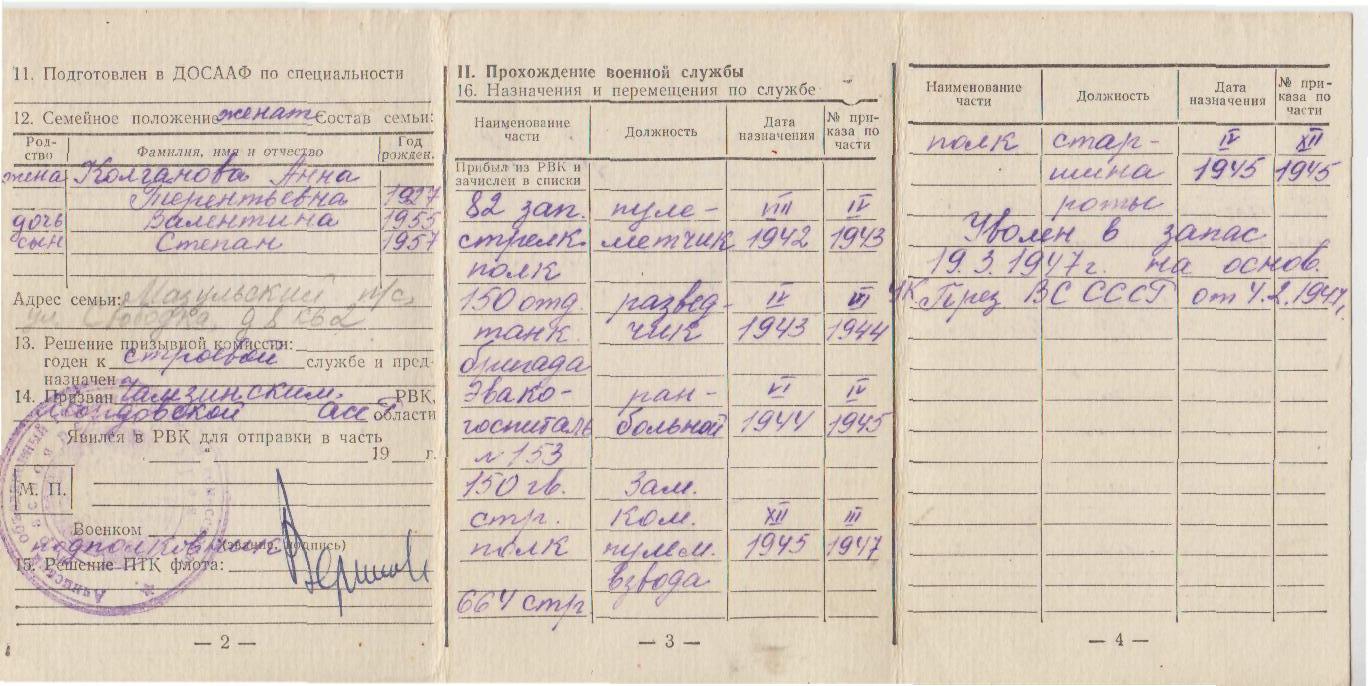 11. Подготовлен в ДОСААФ по специальности
12. Семейное положение женат Состав семьи:
Род-
ство
Фамилия, имя и отчество
Год
рожден.
жена Колганова Анна
Терентьевна 1927
дочь Валентина 1955
сын Степан 1957
Адрес семьи: Мазульский п/с,
ул 98 кв 2
13. Решение призывной комиссии:
годен к строевой службе и пред-
назначен
14. Призван Чамзинским РВК,
Мордовской Асср области
Явился в РВК для отправки в часть
19 г.
М. П.
Военком
подполковник (звание, подпись)
15. Решение ПТК флота:
— 2 —
II. Прохождение военной службы
16. Назначения и перемещения по службе
Наименование
части
Должность
Дата
назначения
№ при-
каза по
части
Прибыл из РВК и
зачислен в списки
82 зап. пуле- VIII IV
стрелк. метчик 1942 1943
полк
150 отд. развед- IV VI
танк. чик 1943 1944
бригада
Эвако- ран- VI IV
госпиталь больной 1944 1945
№ 153
150 гв. Зам.
стр. ком. XII III
полк пулем. 1945 1947
взвода
664 стр
— 3 —
Наименование
части
Должность
Дата
назначения
№ при-
каза по
части
полк стар- IV XII
шина 1945 1945
роты
Уволен в запас
19.3.1947г. на основ.
УК През ВС СССР от 4.2.1947г.
— 4 —